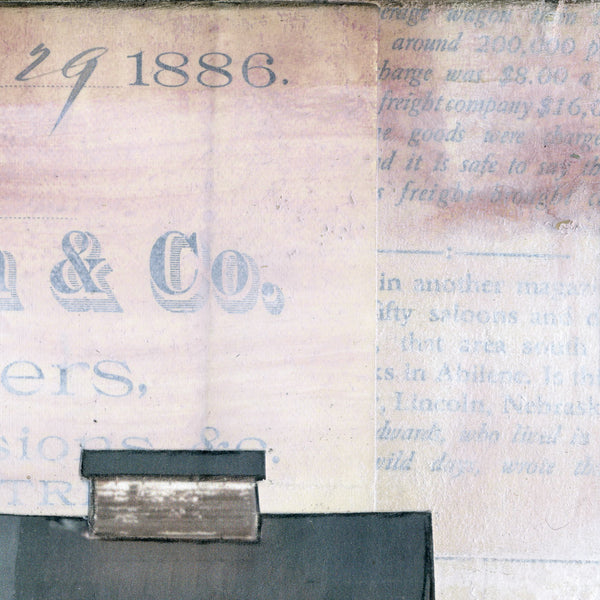 29 1886.
& Co.
ers,
sions, &c.
TR
erage wagon
around 200,000 p
harge was $8.00 a
freight company $16,0
goods were charge
d it is safe to say th
s freight brought
in another magaz
ifty saloons and
that area south
ks in Abilene. Is
Lincoln, Nebrask
dwards, who lived in
wild days, wrote th